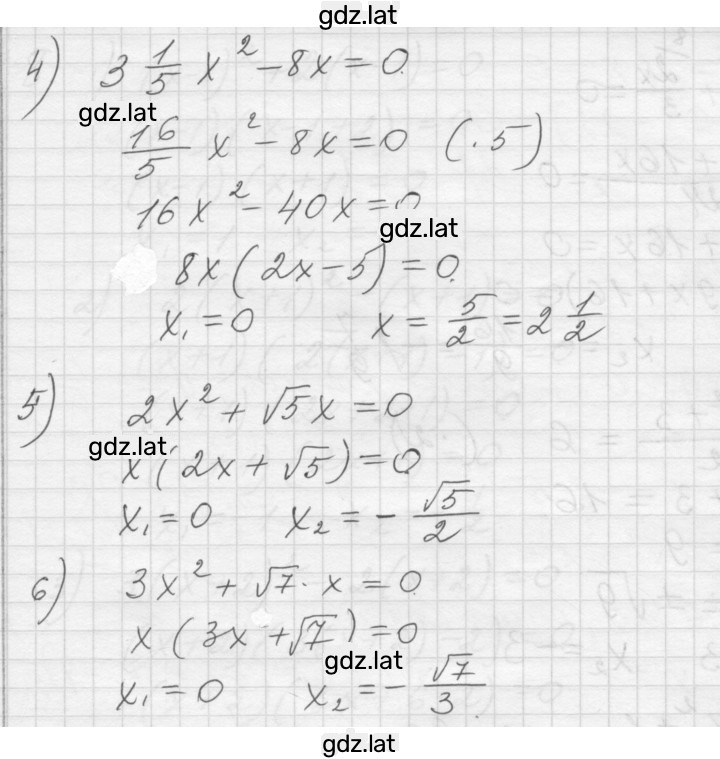 gdz.lat
4) 3 1/5 x² - 8x = 0
gdz.lat
16/5 x² - 8x = 0 (· 5)
16x² - 40x = 0
gdz.lat
8x (2x - 5) = 0
x₁ = 0 x = 5/2 = 2 1/2
5) 2x² + √5x = 0
gdz.lat
x (2x + √5) = 0
x₁ = 0 x₂ = - √5/2
6) 3x² + √7 · x = 0
x (3x + √7) = 0
gdz.lat
x₁ = 0 x₂ = - √7/3
gdz.lat